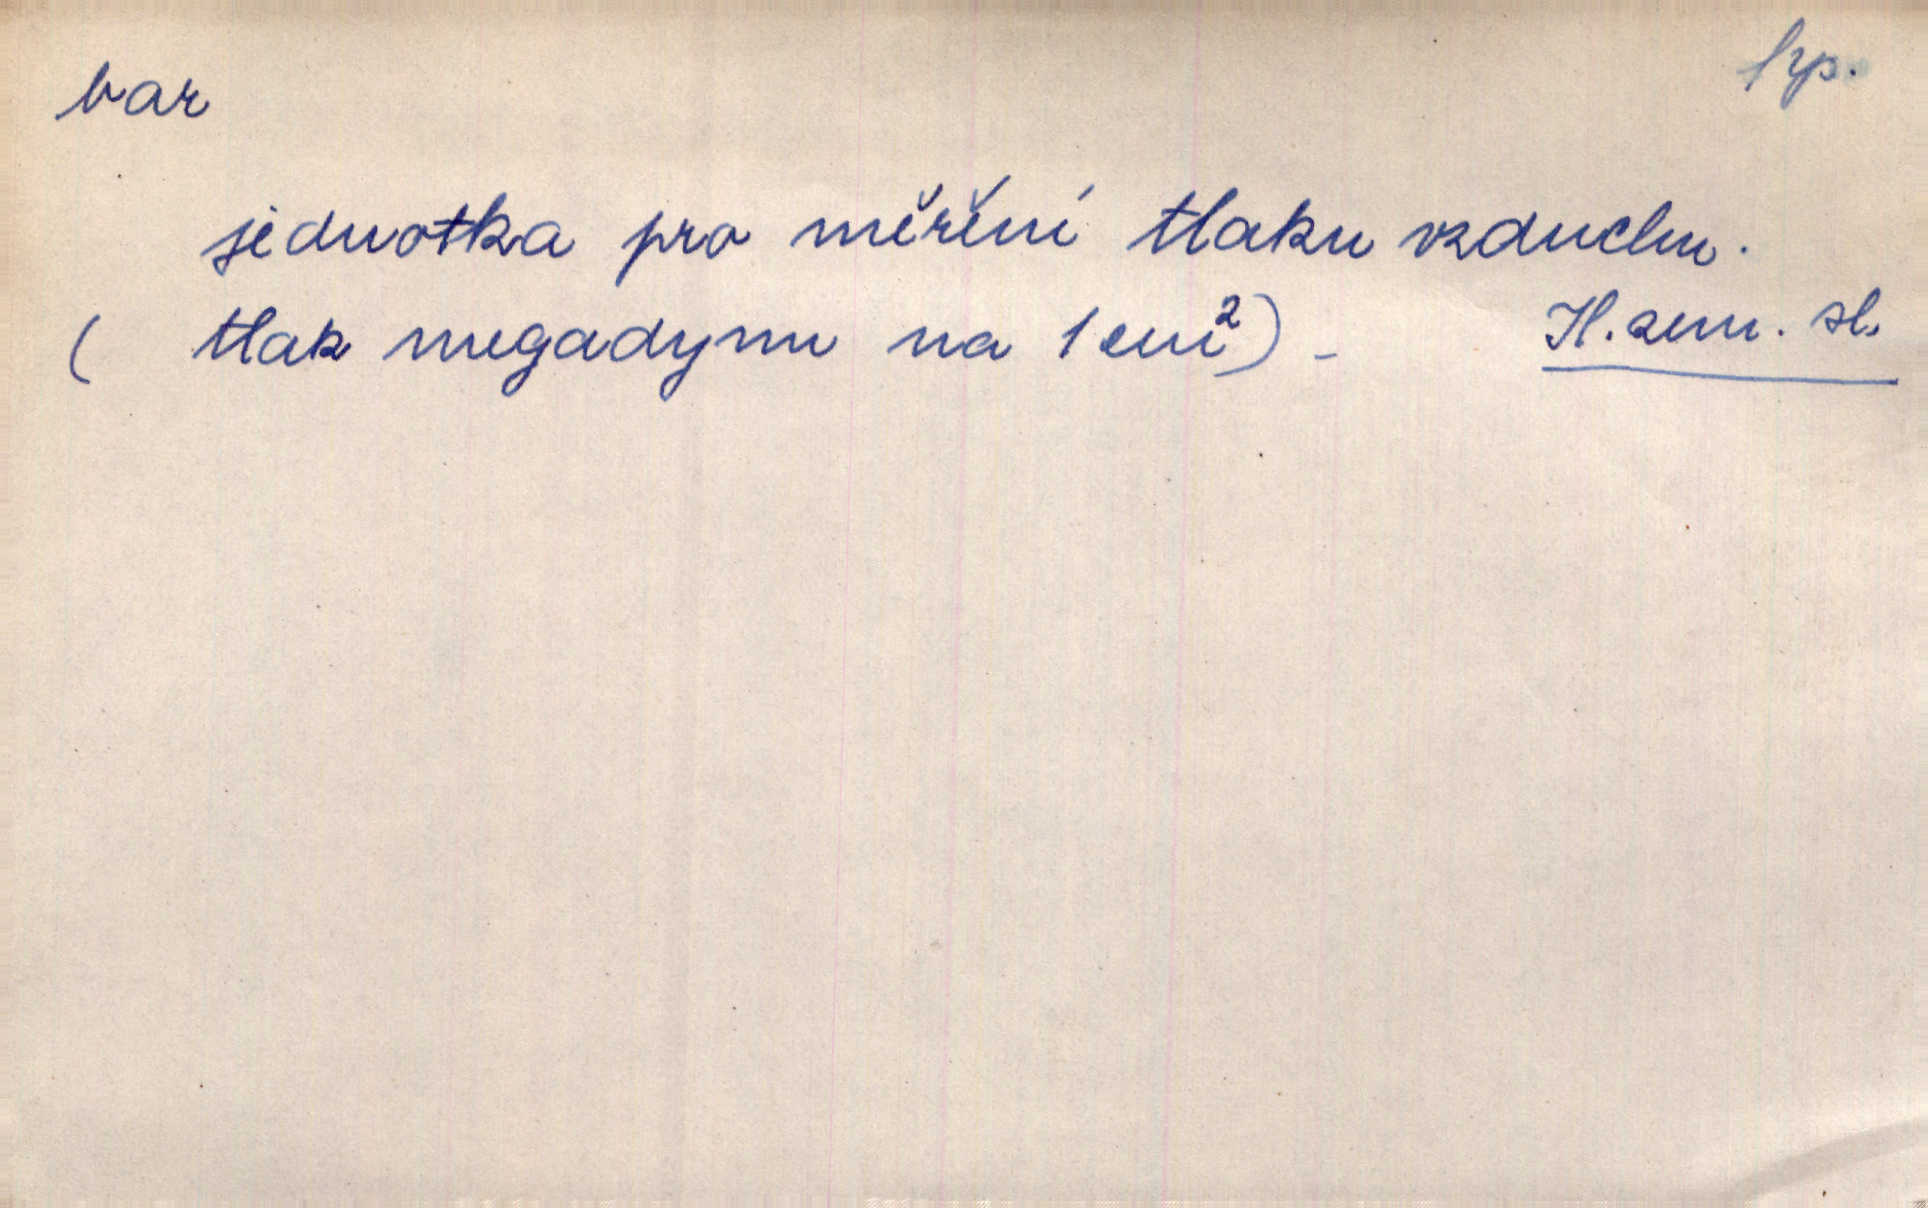 bar
jednotka pro měření tlaku vzduchu.
( tlak megadynu na 1 cm²) - Il. zem. sl.